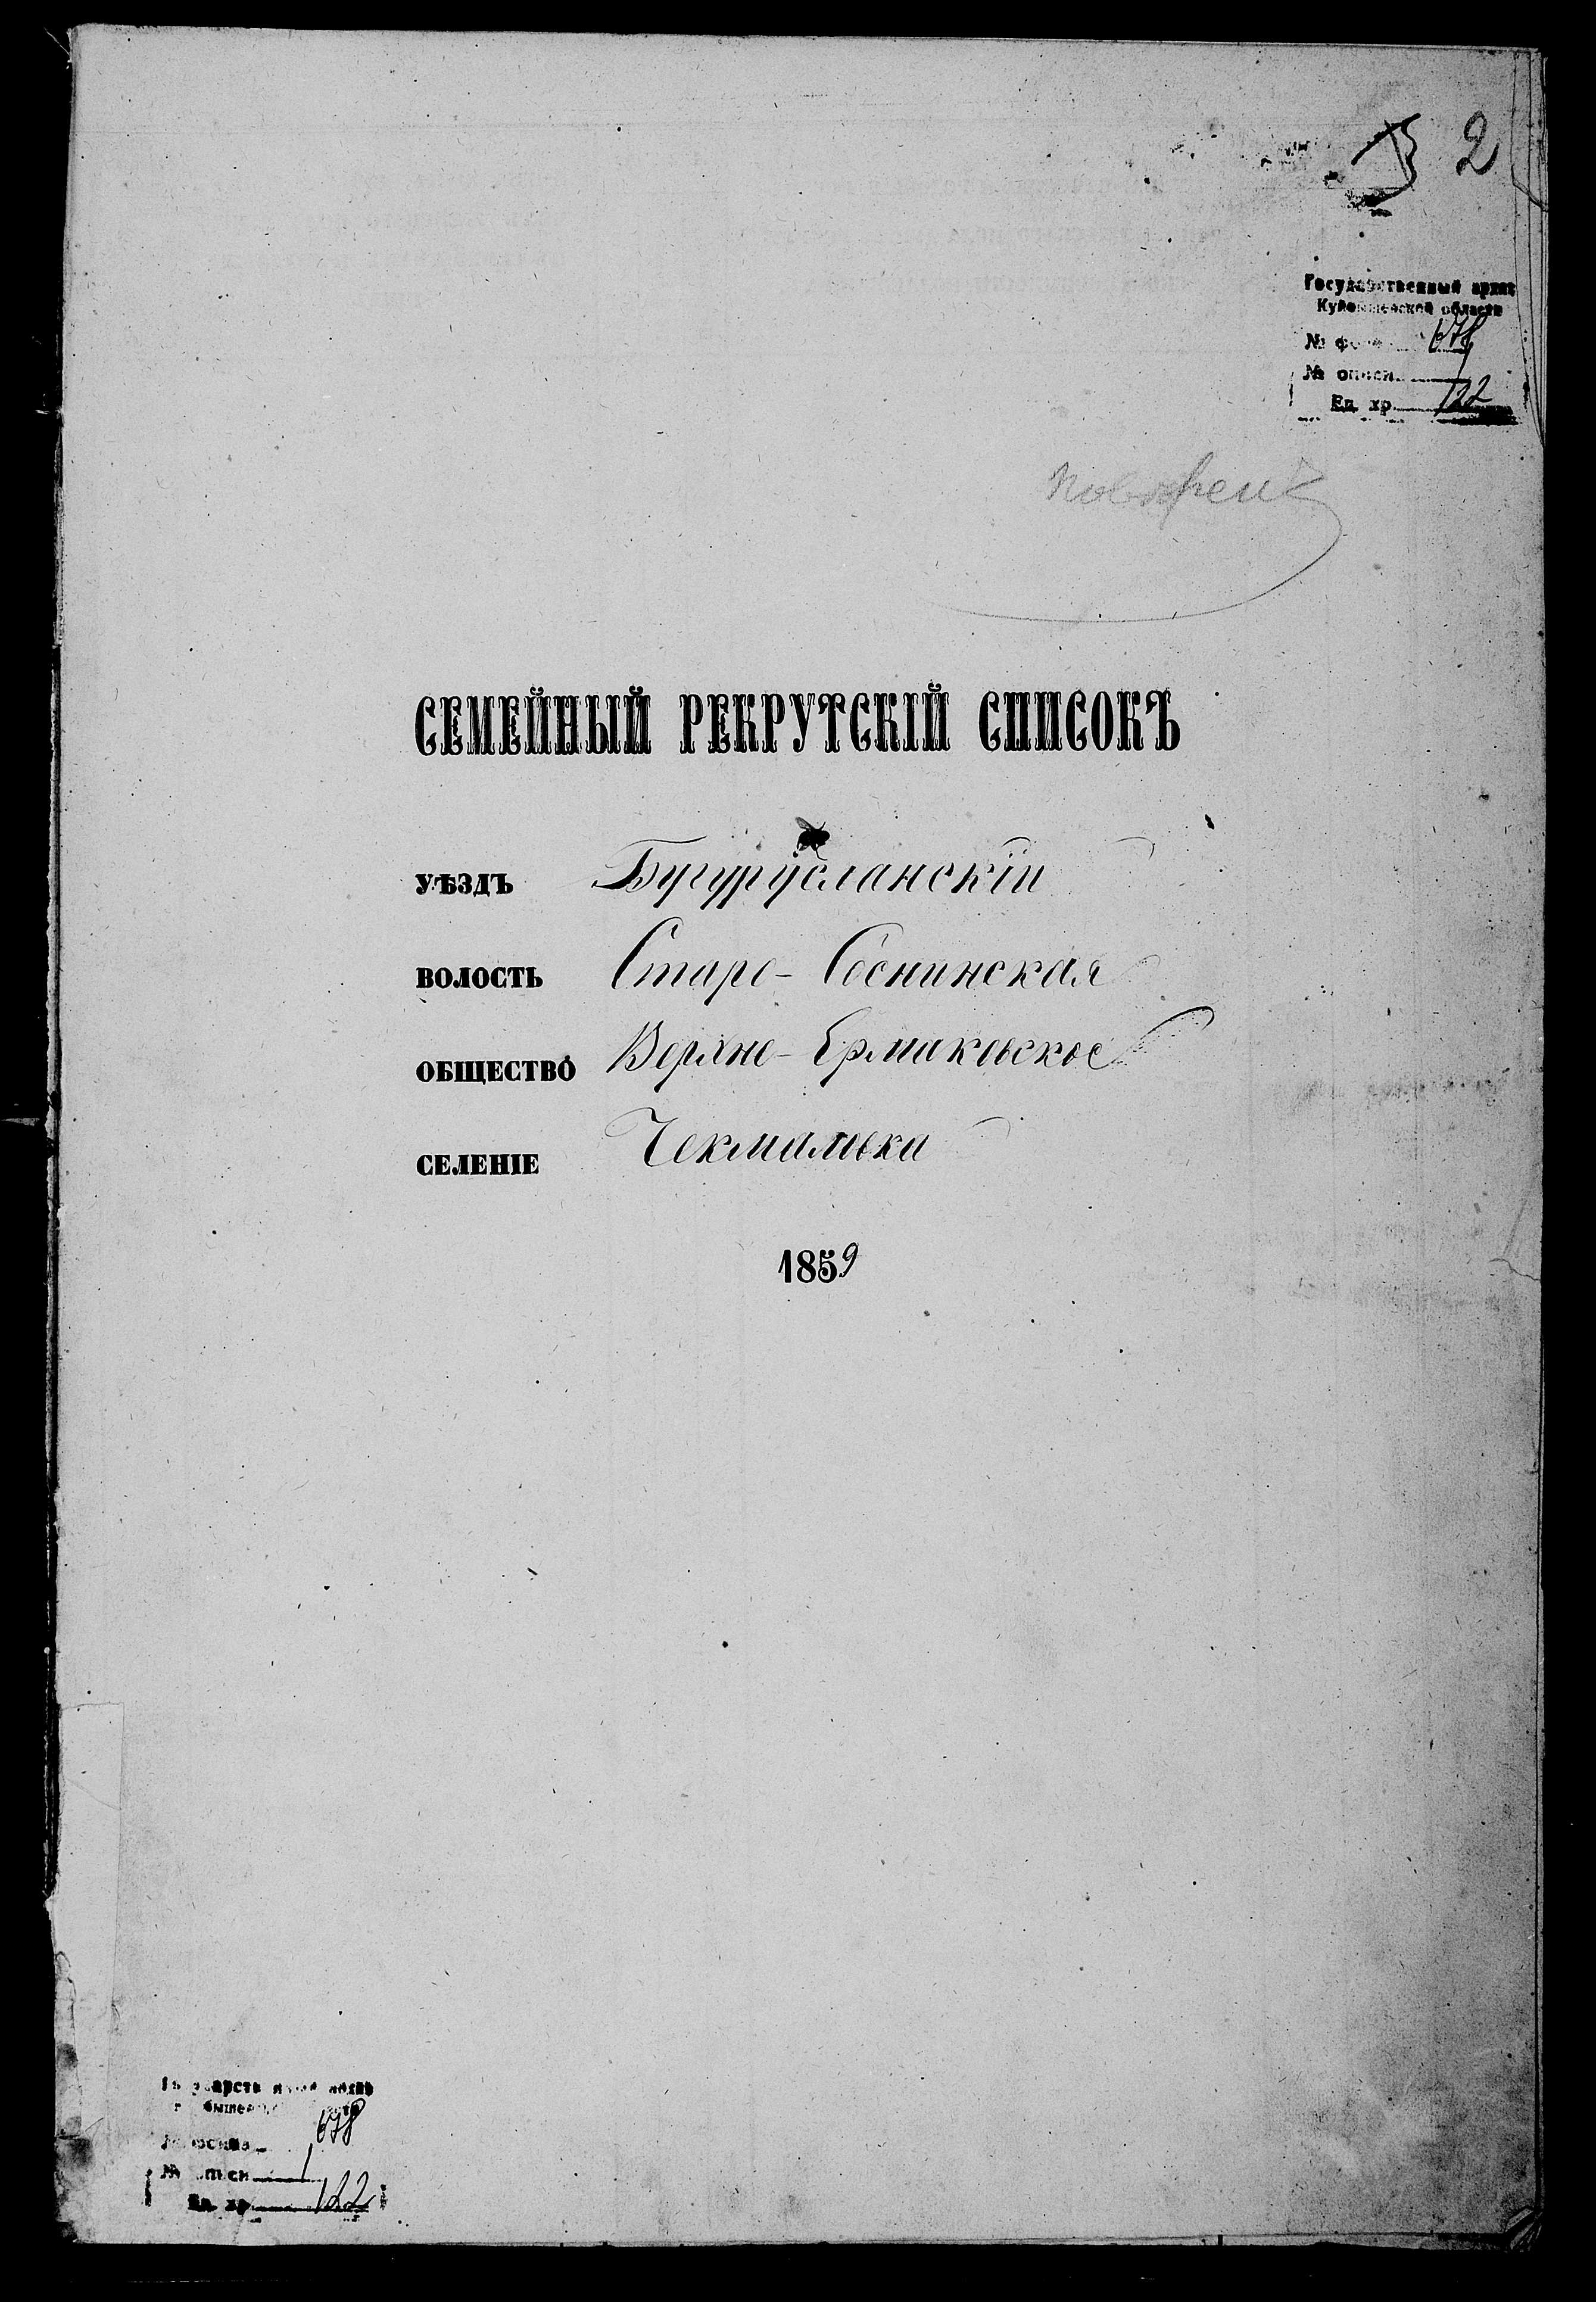 2
Государственный архив
Куйбышевской области
№ фонда 678
№ описи 1
Ед. хр. 122
СЕМЕЙНЫЙ РЕКРУТСКІЙ СПИСОКЪ
УѢЗДЪ Бугурусланскій
ВОЛОСТЬ Старо-Соснинская
ОБЩЕСТВО Верхне-Ермаковское
СЕЛЕНІЕ
1859
Государственный архив
Куйбышевской области
№ фонда 678
№ описи 1
Ед. хр. 122